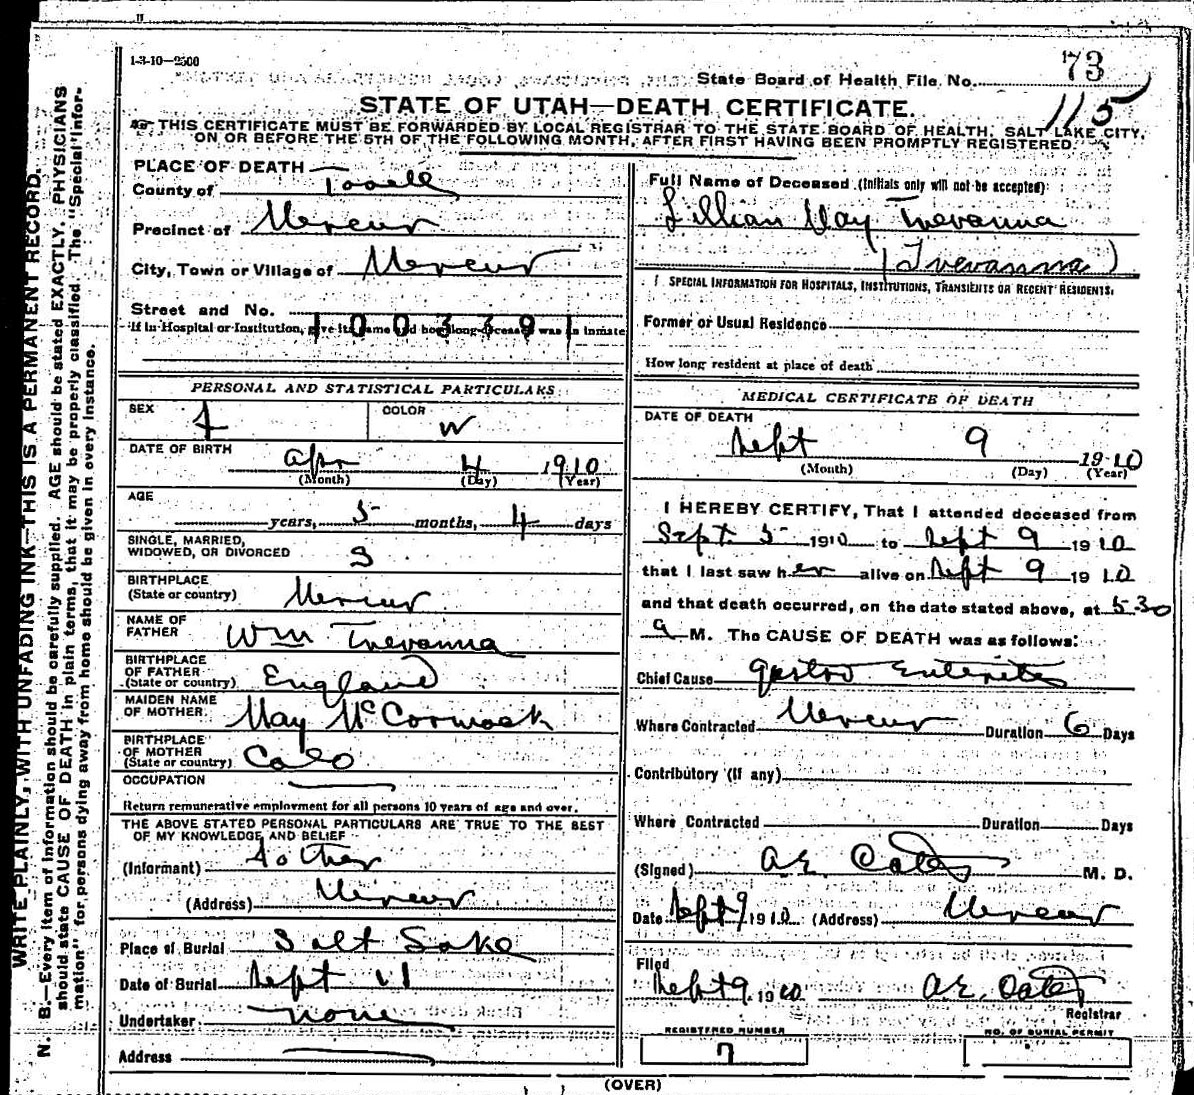 1-3-10—2500
State Board of Health File No. 73
115
STATE OF UTAH—DEATH CERTIFICATE.
THIS CERTIFICATE MUST BE FORWARDED BY LOCAL REGISTRAR TO THE STATE BOARD OF HEALTH, SALT LAKE CITY,
ON OR BEFORE THE 5TH OF THE FOLLOWING MONTH, AFTER FIRST HAVING BEEN PROMPTLY REGISTERED.
WRITE PLAINLY, WITH UNFADING INK—THIS IS A PERMANENT RECORD.
N. B.—Every item of information should be carefully supplied. AGE should be stated EXACTLY. PHYSICIANS
should state CAUSE OF DEATH in plain terms, that it may be properly classified. The "Special Infor-
mation" for persons dying away from home should be given in every instance.
PLACE OF DEATH
County of Tooele
Precinct of Mercur
City, Town or Village of Mercur
Street and No.
If in Hospital or Institution, give its name and how long deceased was an inmate
100391
PERSONAL AND STATISTICAL PARTICULARS
SEX f COLOR W
DATE OF BIRTH Apr 4 1910
(Month) (Day) (Year)
AGE
years, 5 months, 4 days
SINGLE, MARRIED,
WIDOWED, OR DIVORCED S
BIRTHPLACE
(State or country) Mercur
NAME OF
FATHER Wm Trevanna
BIRTHPLACE
OF FATHER
(State or country) England
MAIDEN NAME
OF MOTHER May McCormack
BIRTHPLACE
OF MOTHER
(State or country) Colo
OCCUPATION
Return remunerative employment for all persons 10 years of age and over.
THE ABOVE STATED PERSONAL PARTICULARS ARE TRUE TO THE BEST
OF MY KNOWLEDGE AND BELIEF
(Informant) Father
(Address) Mercur
Place of Burial Salt Lake
Date of Burial Sept 11
Undertaker none
Address
Full Name of Deceased (Initials only will not be accepted)
Lillian May Trevanna
(Trevanna)
SPECIAL INFORMATION FOR HOSPITALS, INSTITUTIONS, TRANSIENTS OR RECENT RESIDENTS.
Former or Usual Residence
How long resident at place of death
MEDICAL CERTIFICATE OF DEATH
DATE OF DEATH
Sept 9 1910
(Month) (Day) (Year)
I HEREBY CERTIFY, That I attended deceased from
Sept. 5 1910 to Sept 9 1910
that I last saw her alive on Sept 9 1910
and that death occurred, on the date stated above, at 5-30
a M. The CAUSE OF DEATH was as follows:
Chief Cause Gastro Enteritis
Where Contracted Mercur Duration 6 Days
Contributory (if any)
Where Contracted Duration Days
(Signed) A.E. Oates M. D.
Date Sept 9 1910 (Address) Mercur
Filed
Sept 9 1910 A.E. Oates
Registrar
REGISTERED NUMBER
7
NO. OF BURIAL PERMIT
(OVER)